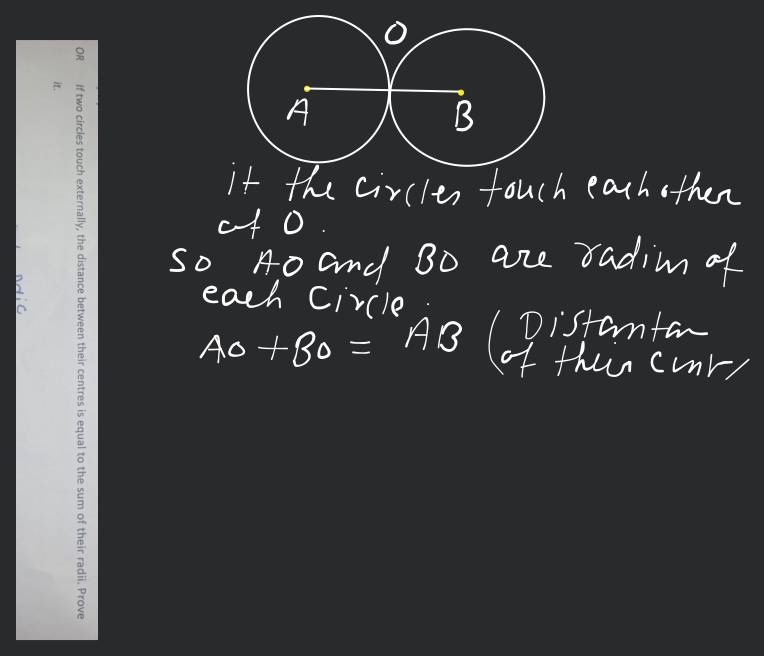 OR If two circles touch externally, the distance between their centres is equal to the sum of their radii. Prove
it.
O
A B
if the circles touch each other
at O.
so AO and BO are radius of
each circle.
AO + BO = AB (Distantan
of their